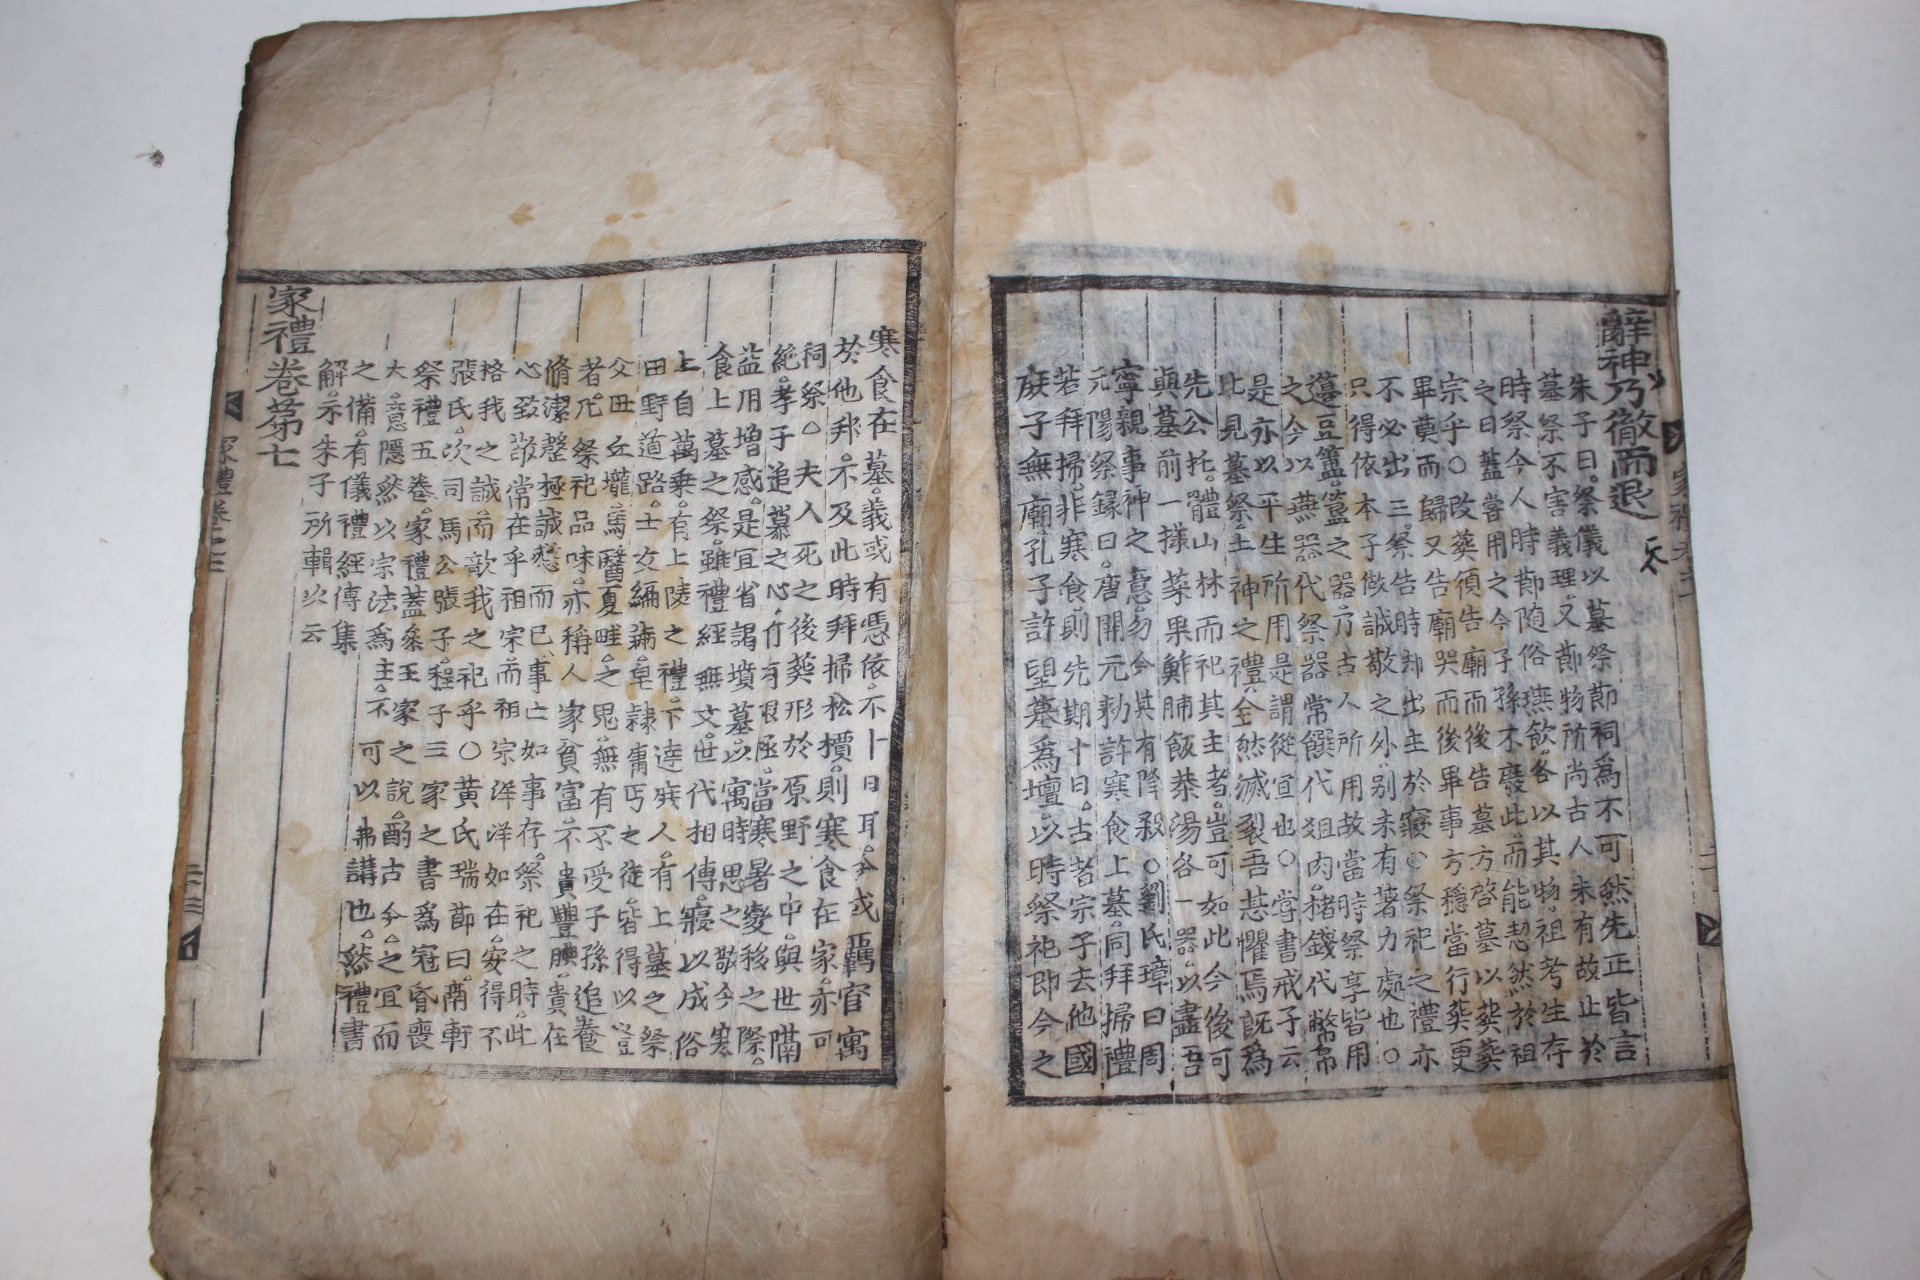 辭神乃徹而退
朱子曰祭儀以墓祭節祠爲不可然先正皆言
墓祭不害義理又節物所尚古人未有故止於
時祭今人時節随俗燕飲各以其物祖考生存
之日蓋嘗用之今子孫不廢此而能恝然於祖
宗乎○改葬須告廟而後告墓方啓墓以葬葬
畢奠而歸又告廟哭而後畢事方穩當行葬更
不必出主祭告時却出主於寢○祭祀之禮亦
只得依本子做誠敬之外别未有著力處也○
籩豆簠簋之器乃古人所用故當時祭享皆用
之今以燕器代祭器常饌代俎肉楮錢代幣帛
是亦以平生所用是謂從宜也○嘗書戒子云
比見墓祭土神之禮全然滅裂吾甚懼焉旣爲
先公托體山林而祀其主者豈可如此今後可
與墓前一㨾菜果鮓脯飯茶湯各一器以盡吾
寧親事神之意勿令其有降殺○劉氏璋曰周
元陽祭録曰唐開元勑許寒食上墓同拜掃禮
若拜掃非寒食則先期十日古者宗子去他國
庶子無廟孔子許望墓爲壇以時祭祀即今之
寒食在墓義或有憑依不卜日耳今或羈宦寓
於他邦不及此時拜掃松檟則寒食在家亦可
祠祭○夫人死之後葬形於原野之中與世隔
絶孝子追慕之心何有限極當寒暑變移之際
益用增感是宜省謁墳墓以寓時思之敬今寒
食上墓之祭雖禮經無文世代相傳寢以成俗
上自萬乗有上陵之禮下逹庶人有上墓之祭
田野道路士女徧滿皁隷庸丐之徒皆得以登
父母丘壠馬醫夏畦之鬼無有不受子孫追養
者凡祭祀品味亦稱人家貧富不貴豐腆貴在
脩潔罄極誠慤而已事亡如事存祭祀之時此
心致敬常在乎祖宗而祖宗洋洋如在安得不
格我之誠而歆我之祀乎○黄氏瑞節曰南軒
張氏次司馬公張子程子三家之書爲冠昏喪
祭禮五卷家禮蓋參三家之說酌古今之宜而
大意隱然以宗法爲主不可以弗講也然禮書
之備有儀禮經傳集
解示朱子所輯以云
家禮卷第七